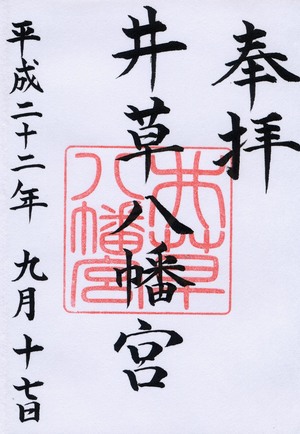 奉拝
井草八幡宮
平成二十二年 九月 十七日
井草八幡宮